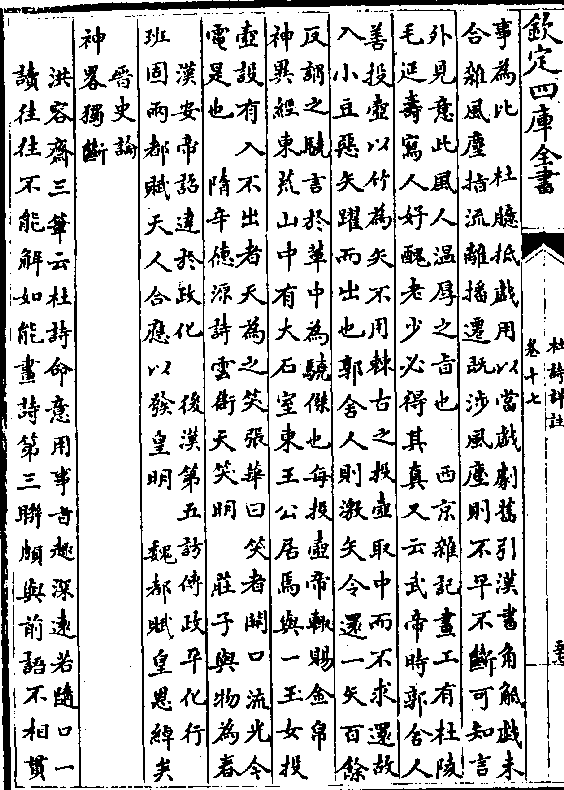 欽定四庫全書
杜詩詳註
卷十七
事為比 杜臆抵戲用以當戲劇舊引漢書角觝戲未
合雜風塵指流離播遷既涉風塵則不早不斷可知言
外見意此風人溫厚之旨也 西京雜記畫工有杜陵
毛延壽寫人好醜老少必得其真又云武帝時郭舍人
善投壺以竹為矢不用棘古之投壺取中而不求還故
入小豆惡矢躍而出也郭舍人則激矢令還一矢百餘
反謂之驍言於輩中為驍傑也每投壺帝輒賜金帛
神異經東荒山中有大石室東王公居焉與一玉女投
壺設有入不出者天為之笑張華曰笑者開口流光今
電是也 隋辛德源詩雲銜天笑明 莊子與物為春
漢安帝詔違於政化 後漢第五訪傳政平化行
班固兩都賦天人合應以發皇明 魏都賦皇恩綽矣
晉史論
神畧獨斷
洪容齋三筆云杜詩命意用事旨趣深遠若隨口一
讀往往不能解如能畫詩第三聯頗與前語不相貫